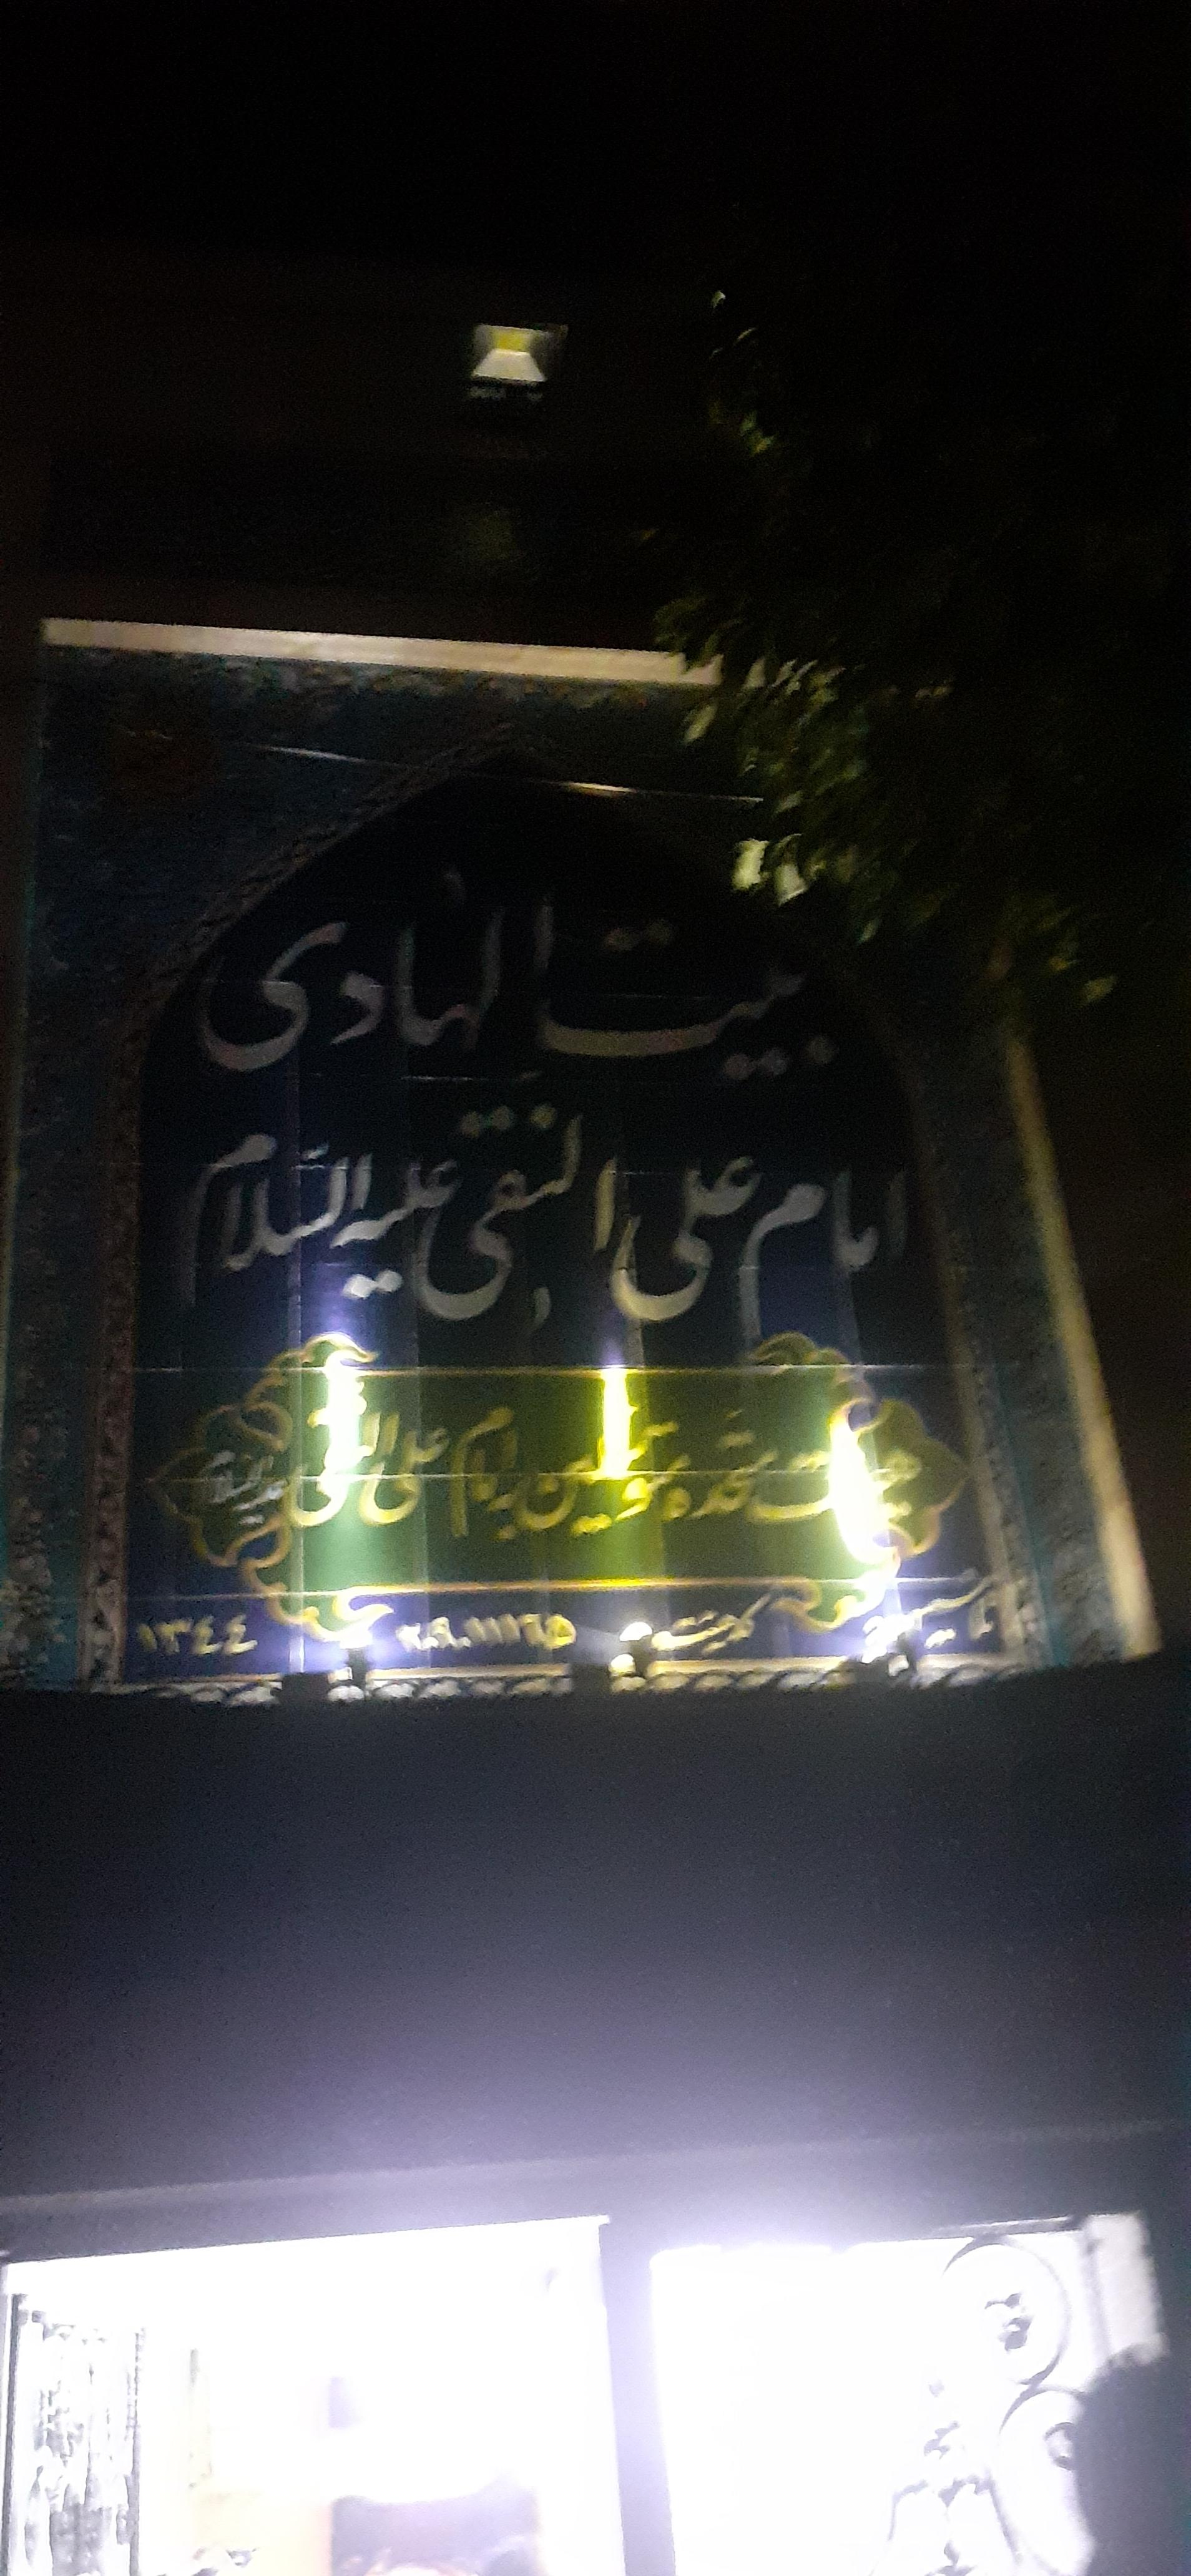 بیت الهادی
امام علی النقی علیه السلام
هیئت متحده متوسلین به امام علی النقی علیه السلام
تاسیس ۱۳۴۴